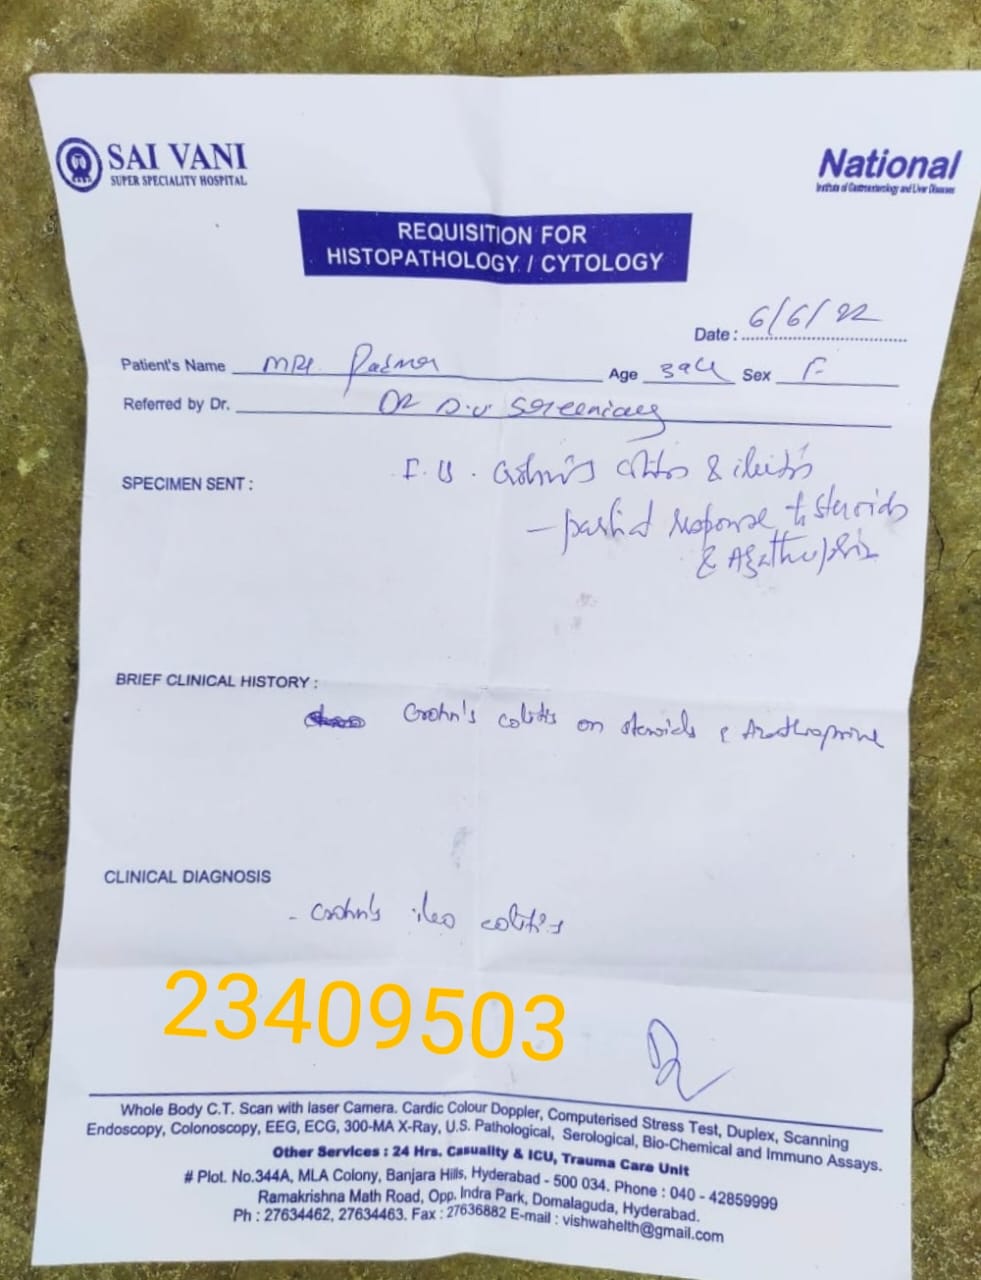 SAI VANI
SUPER SPECIALITY HOSPITAL
National
Institute of Gastroenterology and Liver Diseases
REQUISITION FOR
HISTOPATHOLOGY / CYTOLOGY
Date : 6/6/22
Patient's Name Mrs. Padma Age 39y Sex F
Referred by Dr. Dr D.V
SPECIMEN SENT :
Crohn's colitis & ileitis
- partial response to steroids
&
BRIEF CLINICAL HISTORY :
Crohn's colitis on steroids & Azathioprine
CLINICAL DIAGNOSIS
- Crohn's ileo colitis
23409503
Whole Body C.T. Scan with laser Camera. Cardic Colour Doppler, Computerised Stress Test, Duplex, Scanning
Endoscopy, Colonoscopy, EEG, ECG, 300-MA X-Ray, U.S. Pathological, Serological, Bio-Chemical and Immuno Assays.
Other Services : 24 Hrs. Casuality & ICU, Trauma Care Unit
# Plot. No.344A, MLA Colony, Banjara Hills, Hyderabad - 500 034. Phone : 040 - 42859999
Ramakrishna Math Road, Opp. Indra Park, Domalaguda, Hyderabad.
Ph : 27634462, 27634463. Fax : 27636882 E-mail : vishwahelth@gmail.com